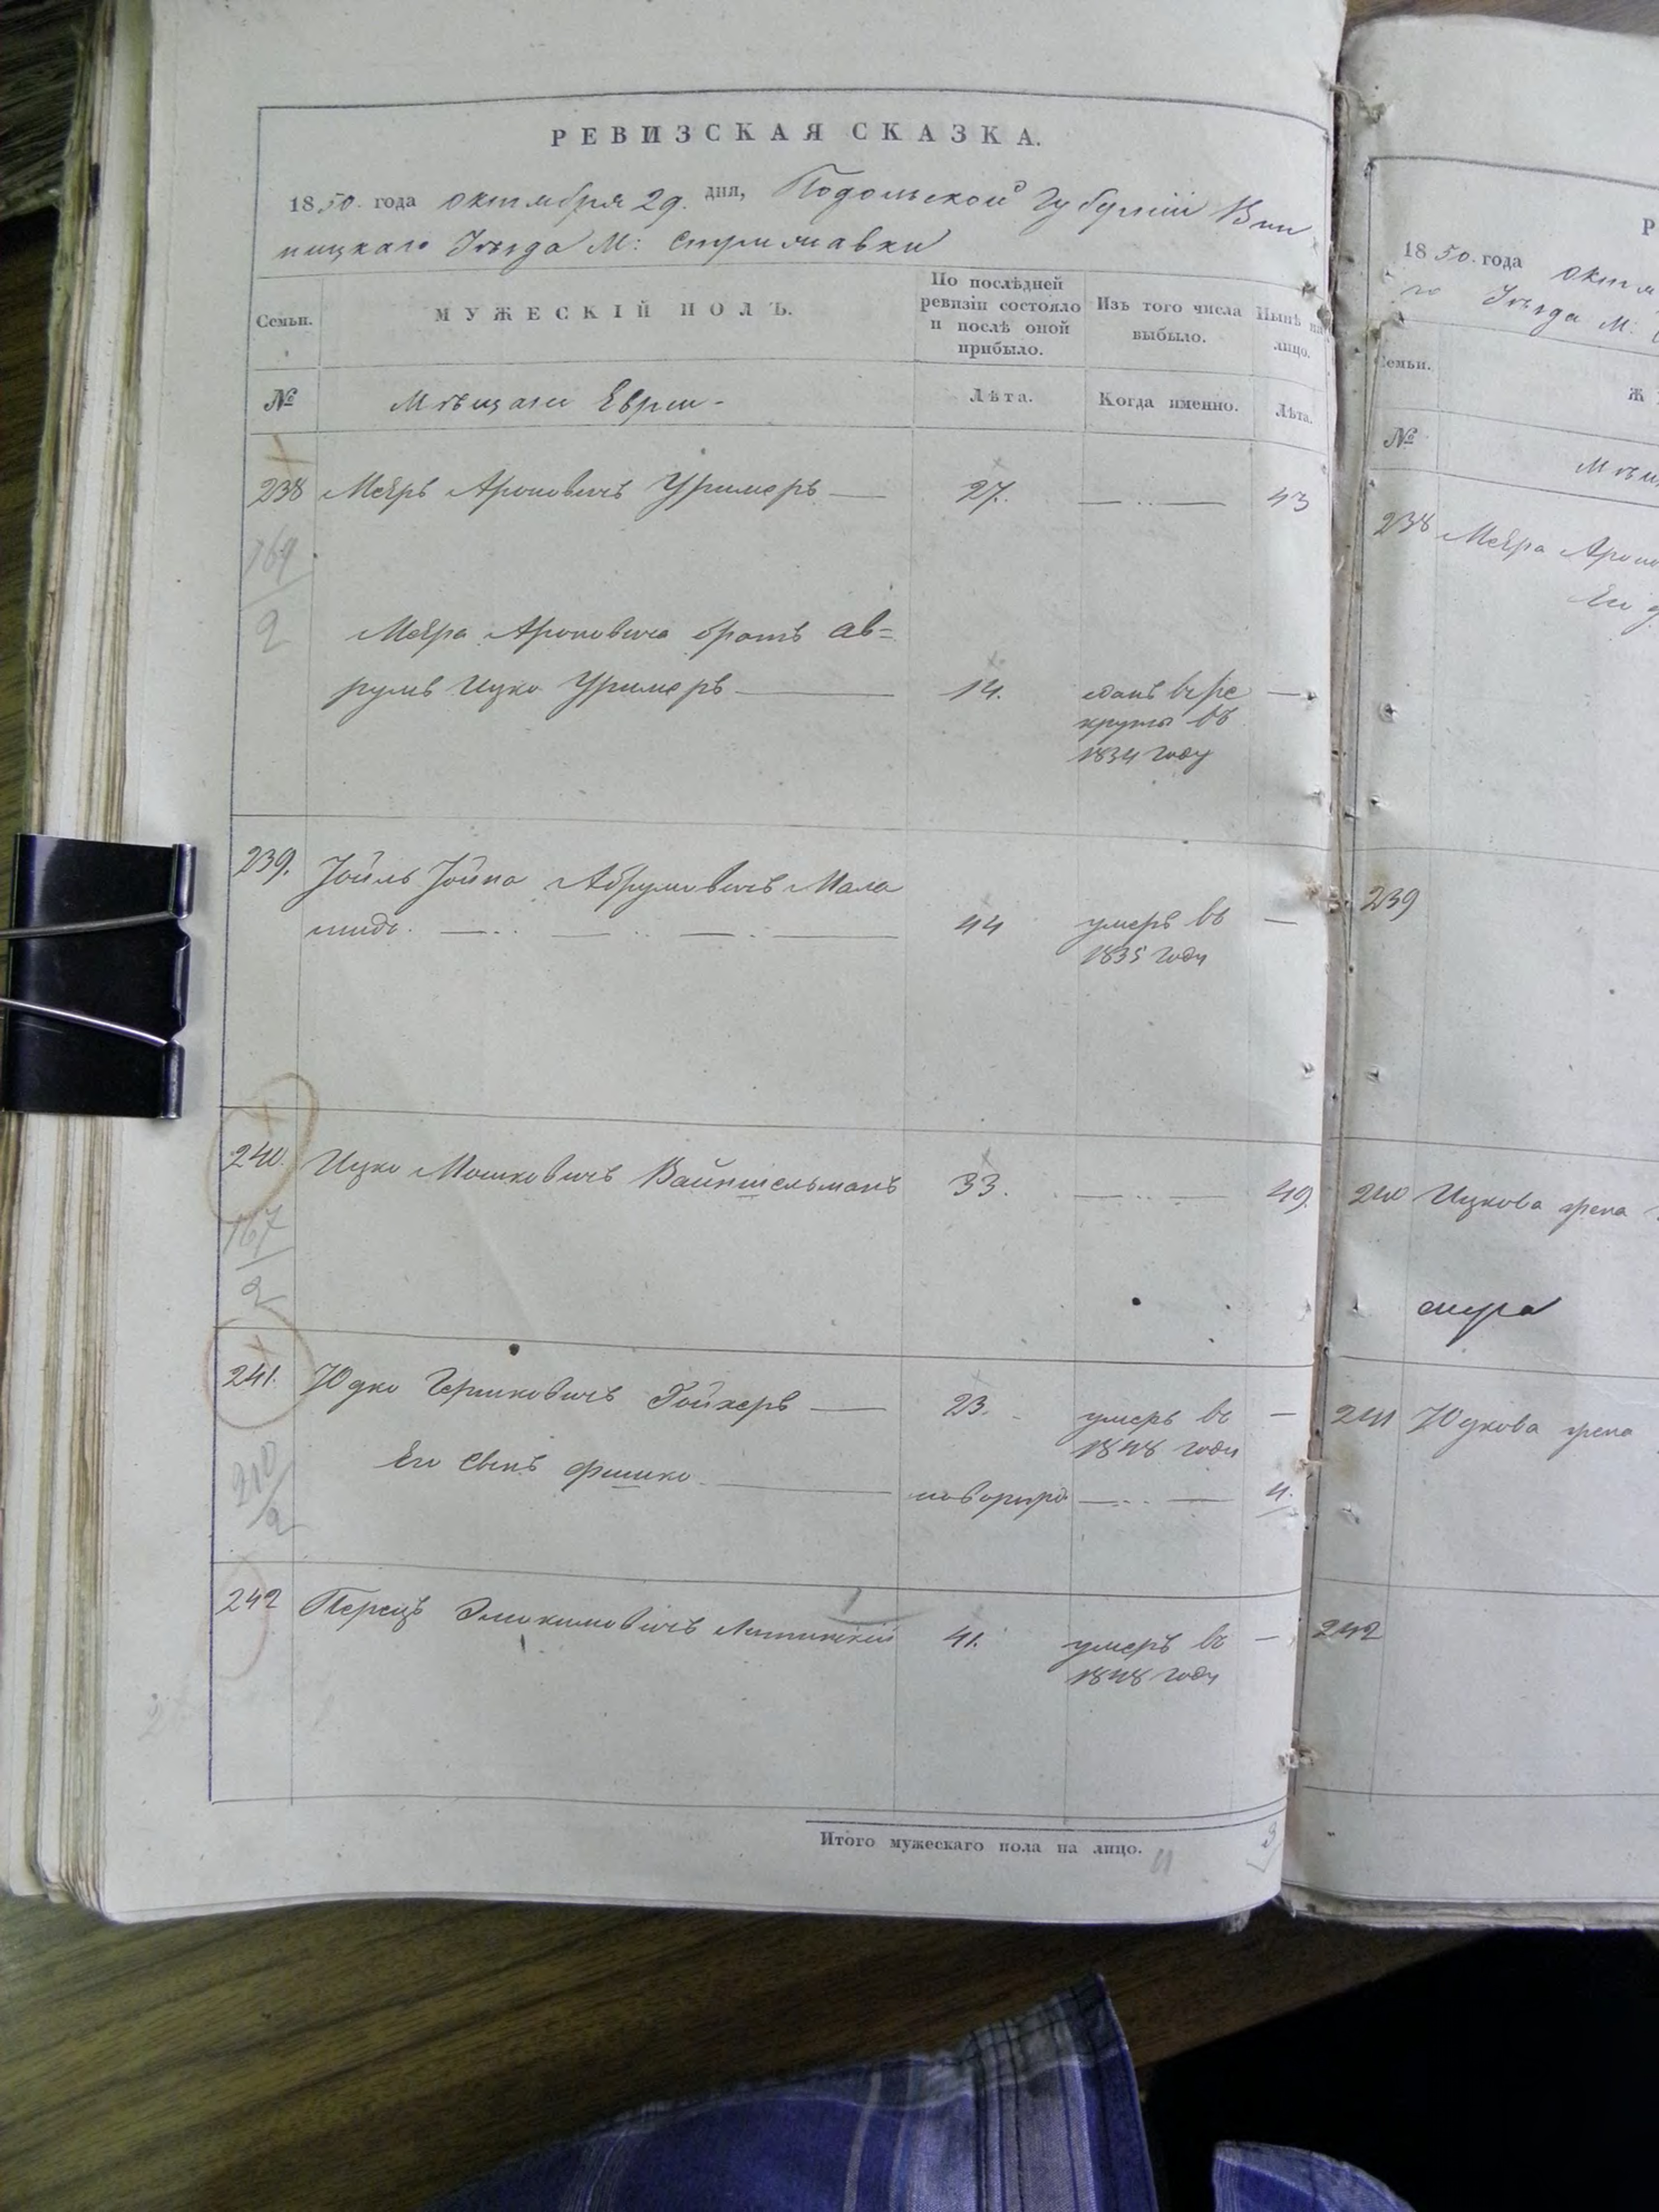 РЕВИЗСКАЯ СКАЗКА.
1850. года октября 29. дня, Подольской Губерніи Вин
ницкаго Уѣзда М: Стрижавки
Семьи.
МУЖЕСКІЙ ПОЛЪ.
По послѣдней ревизіи состояло и послѣ оной прибыло.
Изъ того числа выбыло.
Нынѣ на лицо.
№
Мѣщане Евреи
Лѣта.
Когда именно.
Лѣта.
238 Меяръ Ароновичъ Уримеръ 27. 43
169
2
Меяра Ароновича братъ Ав=
румъ Ицко Уримеръ 14. сданъ въ ре
круты въ
1834 году
239. Іойль Іойна Абрумовичъ Мала
44 умеръ въ
1835 году
240. Ицко Мошковичъ Вайншельманъ 33. 49.
167
2
241. Юдко Гершковичъ Гойхеръ 23. умеръ въ
1848 году
Его сынъ Фишко новорожд 4.
210
2
242 Перецъ Элиокимовичъ Литинскій 41. умеръ въ
1848 году
Итого мужескаго пола на лицо. 3
Р
1850. года
го Уѣзда М:
Семьи.
Ж
№
238 Меяра
Его
239
240 Ицкова жена
241 Юдкова жена
242